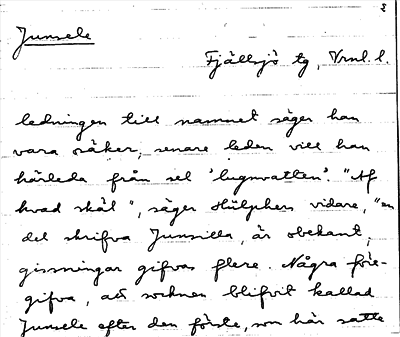 3
Junsele
Fjällsjö tg, Vrnl. l.
ledningen till namnet säger han
vara osäker; senare leden vill han
härleda från sel 'lugnvatten'. "Af
hvad skäl", säger Hülphers vidare, "en
del skrifva Junsilla, är obekant;
gissningar gifvas flere. Några före-
gifva, att socknen blifvit kallad
Junsele efter den förste, som här satte